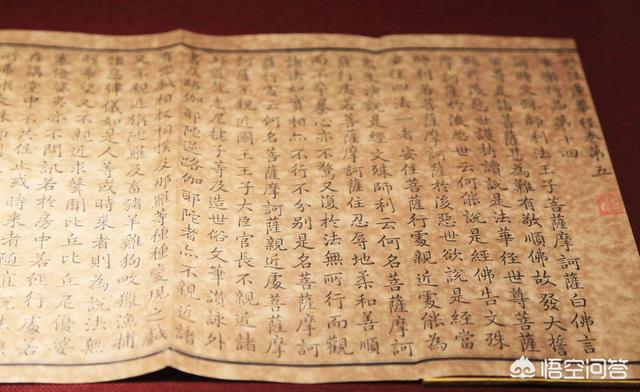 妙法蓮華經卷第五
安樂行品第十四
尒時文殊師利法王子菩薩摩訶薩白佛言
世尊是諸菩薩甚為難有敬順佛故發大誓
願於後惡世護持讀說是法華經世尊菩薩
摩訶薩於後惡世云何能說是經佛告文殊
師利若菩薩摩訶薩於後惡世欲說是經當
安住四法一者安住菩薩行處親近處能為
眾生演說是經文殊師利云何名菩薩摩訶
薩行處若菩薩摩訶薩住忍辱地柔和善順
而不卒暴心亦不驚又復於法無所行而觀
諸法如實相亦不行不分別是名菩薩摩訶
薩行處云何名菩薩摩訶薩親近處菩薩摩
訶薩不親近國王王子大臣官長不親近諸
外道梵志尼揵子等及造世俗文筆讚詠外
書及路伽耶陀逆路伽耶陀者亦不親近諸
有兇戲相扠相撲及那羅等種種變現之戲
又不親近旃陀羅及畜豬羊雞狗畋獵漁捕
諸惡律儀如是人等或時來者則為說法無
所悕望又不親近求聲聞比丘比丘尼優婆
塞優婆夷亦不問訊若於房中若經行處若
在講堂中不共住止或時來者隨宜說法無
悟空问答